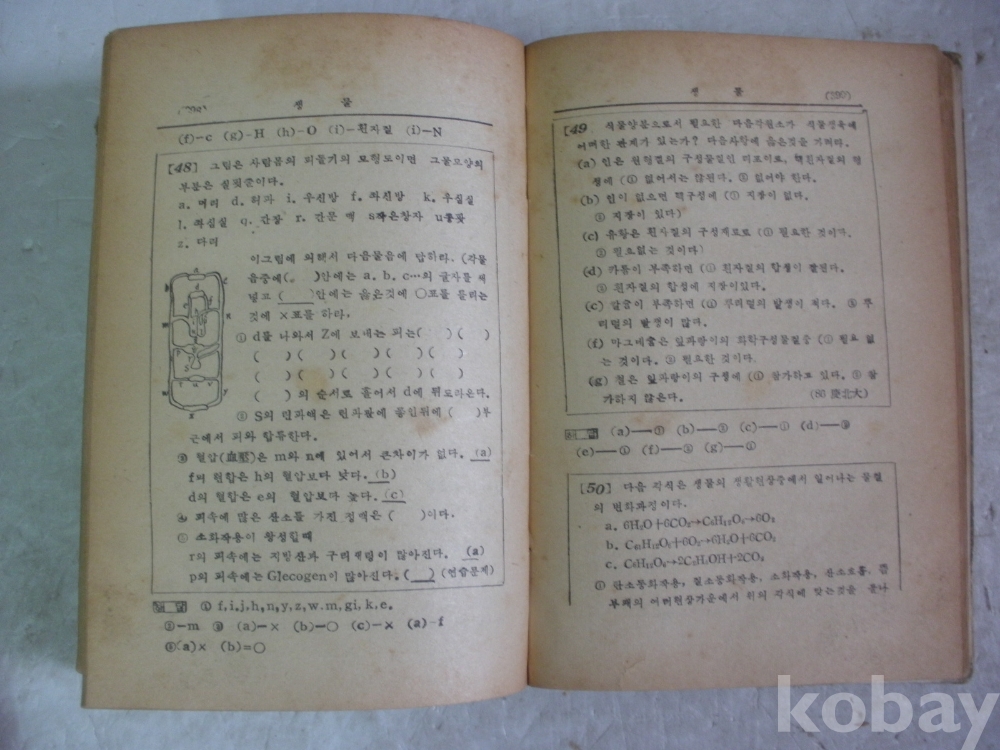 생 물
(f)-c (g)-H (h)-O (i)-흰자질 (i)-N
[48] 그림은 사람몸의 피돌기의 모형도이면 그물모양의
부분은 실핏줄이다.
a. 머리 d. 허파 i. 우심방 f. 좌심방 k. 우심실
l. 좌심실 q. 간장 r. 간문 맥 s작은창자 u콩팟
z. 다리
이그림에 의해서 다음물음에 답하라. (각물
음중에( )안에는 a. b. c…의 글자를 써
넣고 ( )안에는 옳은것에 ○표를 틀리는
것에 ×표를 하라,
① d를 나와서 Z에 보내는 피는( ) ( )
( ) ( ) ( ) ( ) ( )
( ) ( ) ( ) ( ) ( )
( )의 순서로 흘어서 d에 뒤도라온다.
② S의 림파액은 림파관에 통인뒤에 ( )부
근에서 피와 합류한다.
③ 혈압(血壓)은 m와 n에 있어서 큰차이가 없다. (a)
f의 혈압은 h의 혈압보다 낮다. (b)
d의 혈압은 e의 혈압보다 높다. (c)
④ 피속에 많은 산소를 가진 정맥은 ( )이다.
⑤ 소화작용이 왕성할때
r의 피속에는 지방산과 구리세링이 많아진다. (a)
p의 피속에는 Glecogen이 많아진다. ( ) (연합문제)
해답 ① f, i, j, h, n, y, z, w. m, gi, k, e.
②-m ③ (a)-× (b)-○ (c)-× (a)-f
⑤(a)× (b)=○
생 물
(399)
[49 식물양분으로서 필요한 다음각원소가 식물생육에
어떠한 관계가 있는가? 다음사항에 옳은것을 가려라.
(a) 인은 원형질의 구성물질인 미포이로, 핵흰자질의 형
생에 (① 없어서는 않된다. ② 없어야 된다.
(b) 인이 없으면 핵구성에 (① 지장이 없다.
② 지장이 있다)
(c) 유황은 흰자질의 구성재료로 (① 필요한 것이다.
② 필요없는 것이다)
(d) 카룸이 부족하면 (① 흰자질의 합생이 잘된다.
② 흰자질의 합성에 지장이있다.
(e) 칼슘이 부족하면 (① 뿌리털의 발생이 적다. ② 뿌
리털의 발생이 많다.
(f) 마그네슘은 잎파랑이의 화학구성물질중 (① 필요 없
는 것이다. ② 필요한 것이다.
(g) 철은 잎파랑이의 구생에 (① 참가하고 있다. ② 참
가하지 않은다. (86 慶北大)
해답 (a)—① (b)—② (c)—① (d)—②
(e)—① (f)—② (g)—①
[50] 다음 각식은 생물의 생활현상중에서 일어나는 물질
의 변화과정이다.
a. 6H₂O+6CO₂→C₆H₁₂O₆→6O₂
b. C₆H₁₂O₆+6O₂→6H₂O+6CO₂
c. C₆H₁₂O₆→2C₂H₅OH+2CO₂
① 탄소동화작용, 질소동화작용, 소화작용, 산소호흡,
부패의 어떠현상가운에서 위의 각식에 맞는것을 골나
kobay